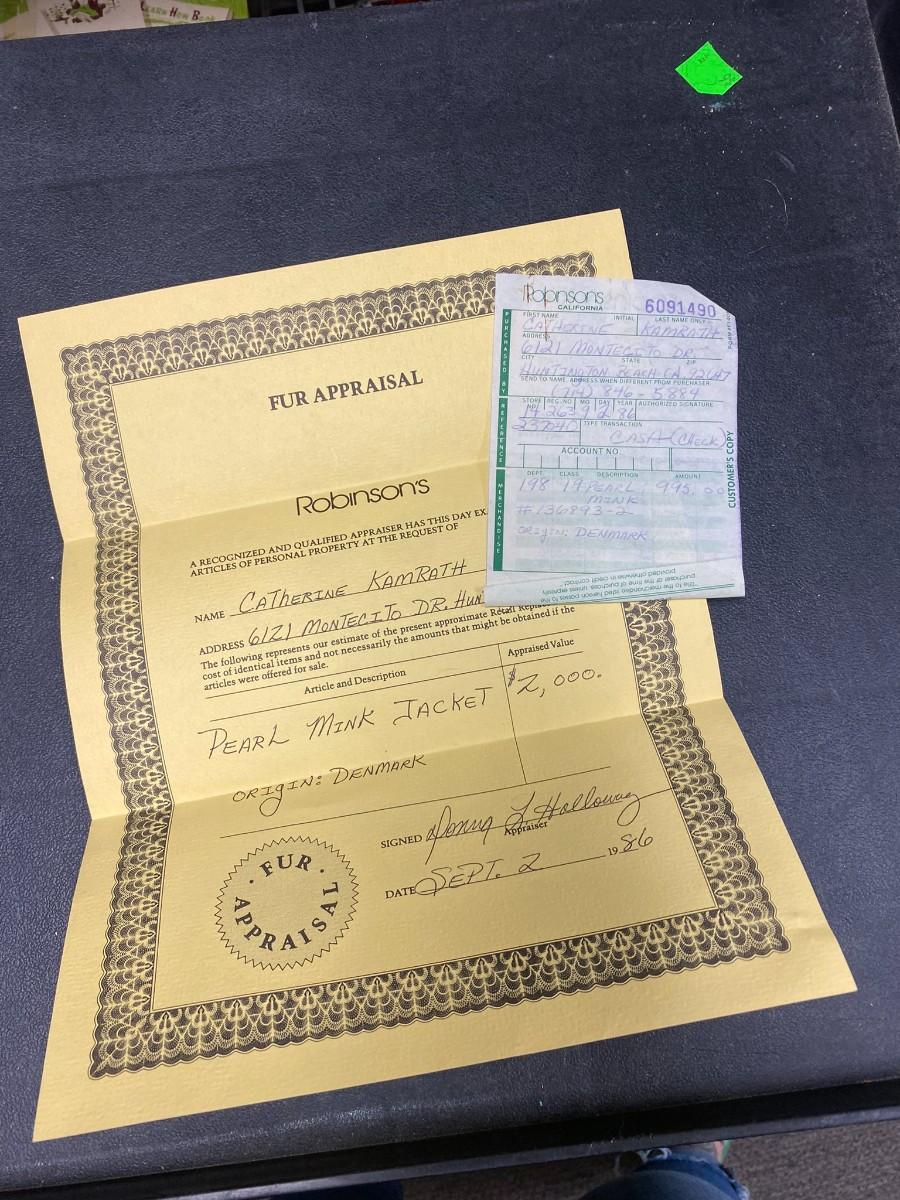 Learn How
FUR APPRAISAL
Robinson's
A RECOGNIZED AND QUALIFIED APPRAISER HAS THIS DAY EX
ARTICLES OF PERSONAL PROPERTY AT THE REQUEST OF
NAME CATHERINE KAMRATH
ADDRESS 6121 MONTECITO DR. HUN
The following represents our estimate of the present approximate Retail
cost of identical items and not necessarily the amounts that might be obtained if the
articles were offered for sale.
Article and Description
Appraised Value
PEARL MINK JACKET
$2,000.
ORIGIN: DENMARK
SIGNED Donna L Holloway
Appraiser
DATE SEPT. 2 1986
· FUR ·
APPRAISAL
Robinson's
CALIFORNIA
6091490
PURCHASED BY
FIRST NAME INITIAL LAST NAME ONLY
CATHERINE KAMRATH
ADDRESS
6121 MONTECITO DR.
CITY STATE ZIP
HUNTINGTON BEACH CA. 92647
SEND TO NAME, ADDRESS WHEN DIFFERENT FROM PURCHASER
846-5884
REFERENCE
STORE REG. NO MO DAY YEAR AUTHORIZED SIGNATURE
14 263 9 2 86
237040
TYPE TRANSACTION
CASH (CHECK)
ACCOUNT NO.
MERCHANDISE
DEPT. CLASS DESCRIPTION AMOUNT
198 19 PEARL 995.00
MINK
#136893-2
ORIGIN: DENMARK
CUSTOMER'S COPY
Title to the merchandise listed herein passes to the
purchaser at the time of purchase unless expressly
provided otherwise in credit contract.